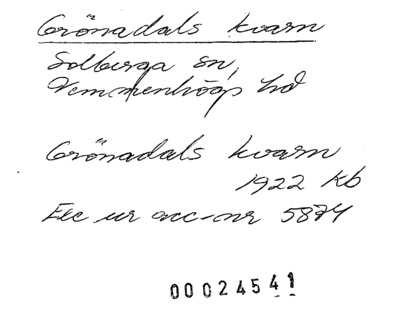 Grönadals kvarn
Solberga sn,
Vemmenhögs hd
Grönadals kvarn
1922 Kb
Exc ur acc-nr 5874
00024541